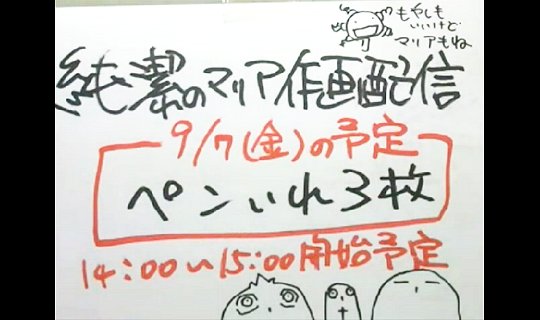 もやしも
いいけど
マリアもね
純潔のマリア作画配信
9/7(金)の予定
ペンいれ3枚
14:00〜15:00開始予定